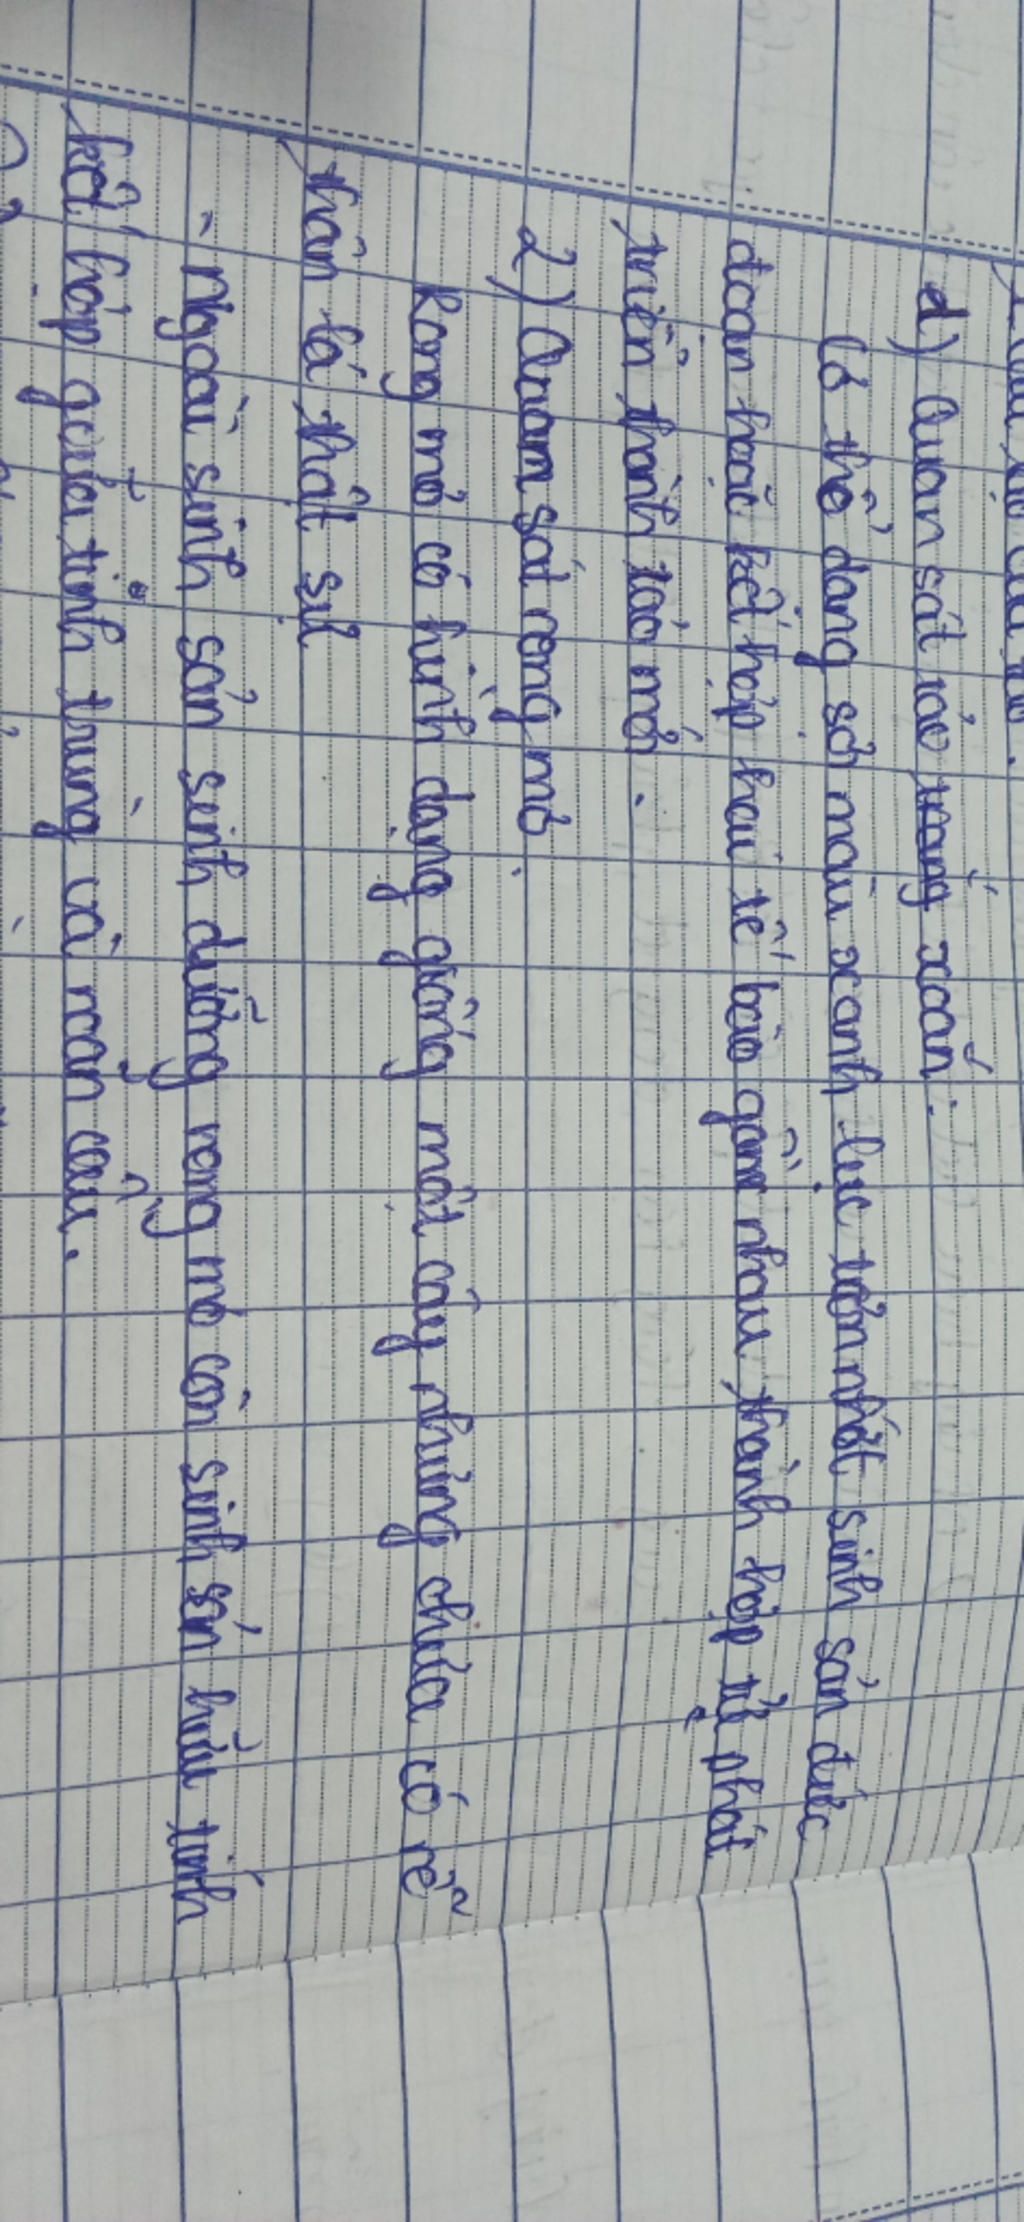 d) Quan sát tảo trắng xoắn.
Có thể dạng sợi màu xanh lục trơn nhớt sinh sản đứt
đoạn hoặc kết hợp hai tế bào gồm nhau thành hợp tử phát
triển thành tảo mới.
2) Quan sát rong mơ.
Rong mơ có hình dạng giống một cây nhưng chưa có rễ
thân lá thật sự
- Ngoài sinh sản sinh dưỡng rong mơ còn sinh sản hữu tính
kết hợp giữa tinh trùng và noãn cầu.